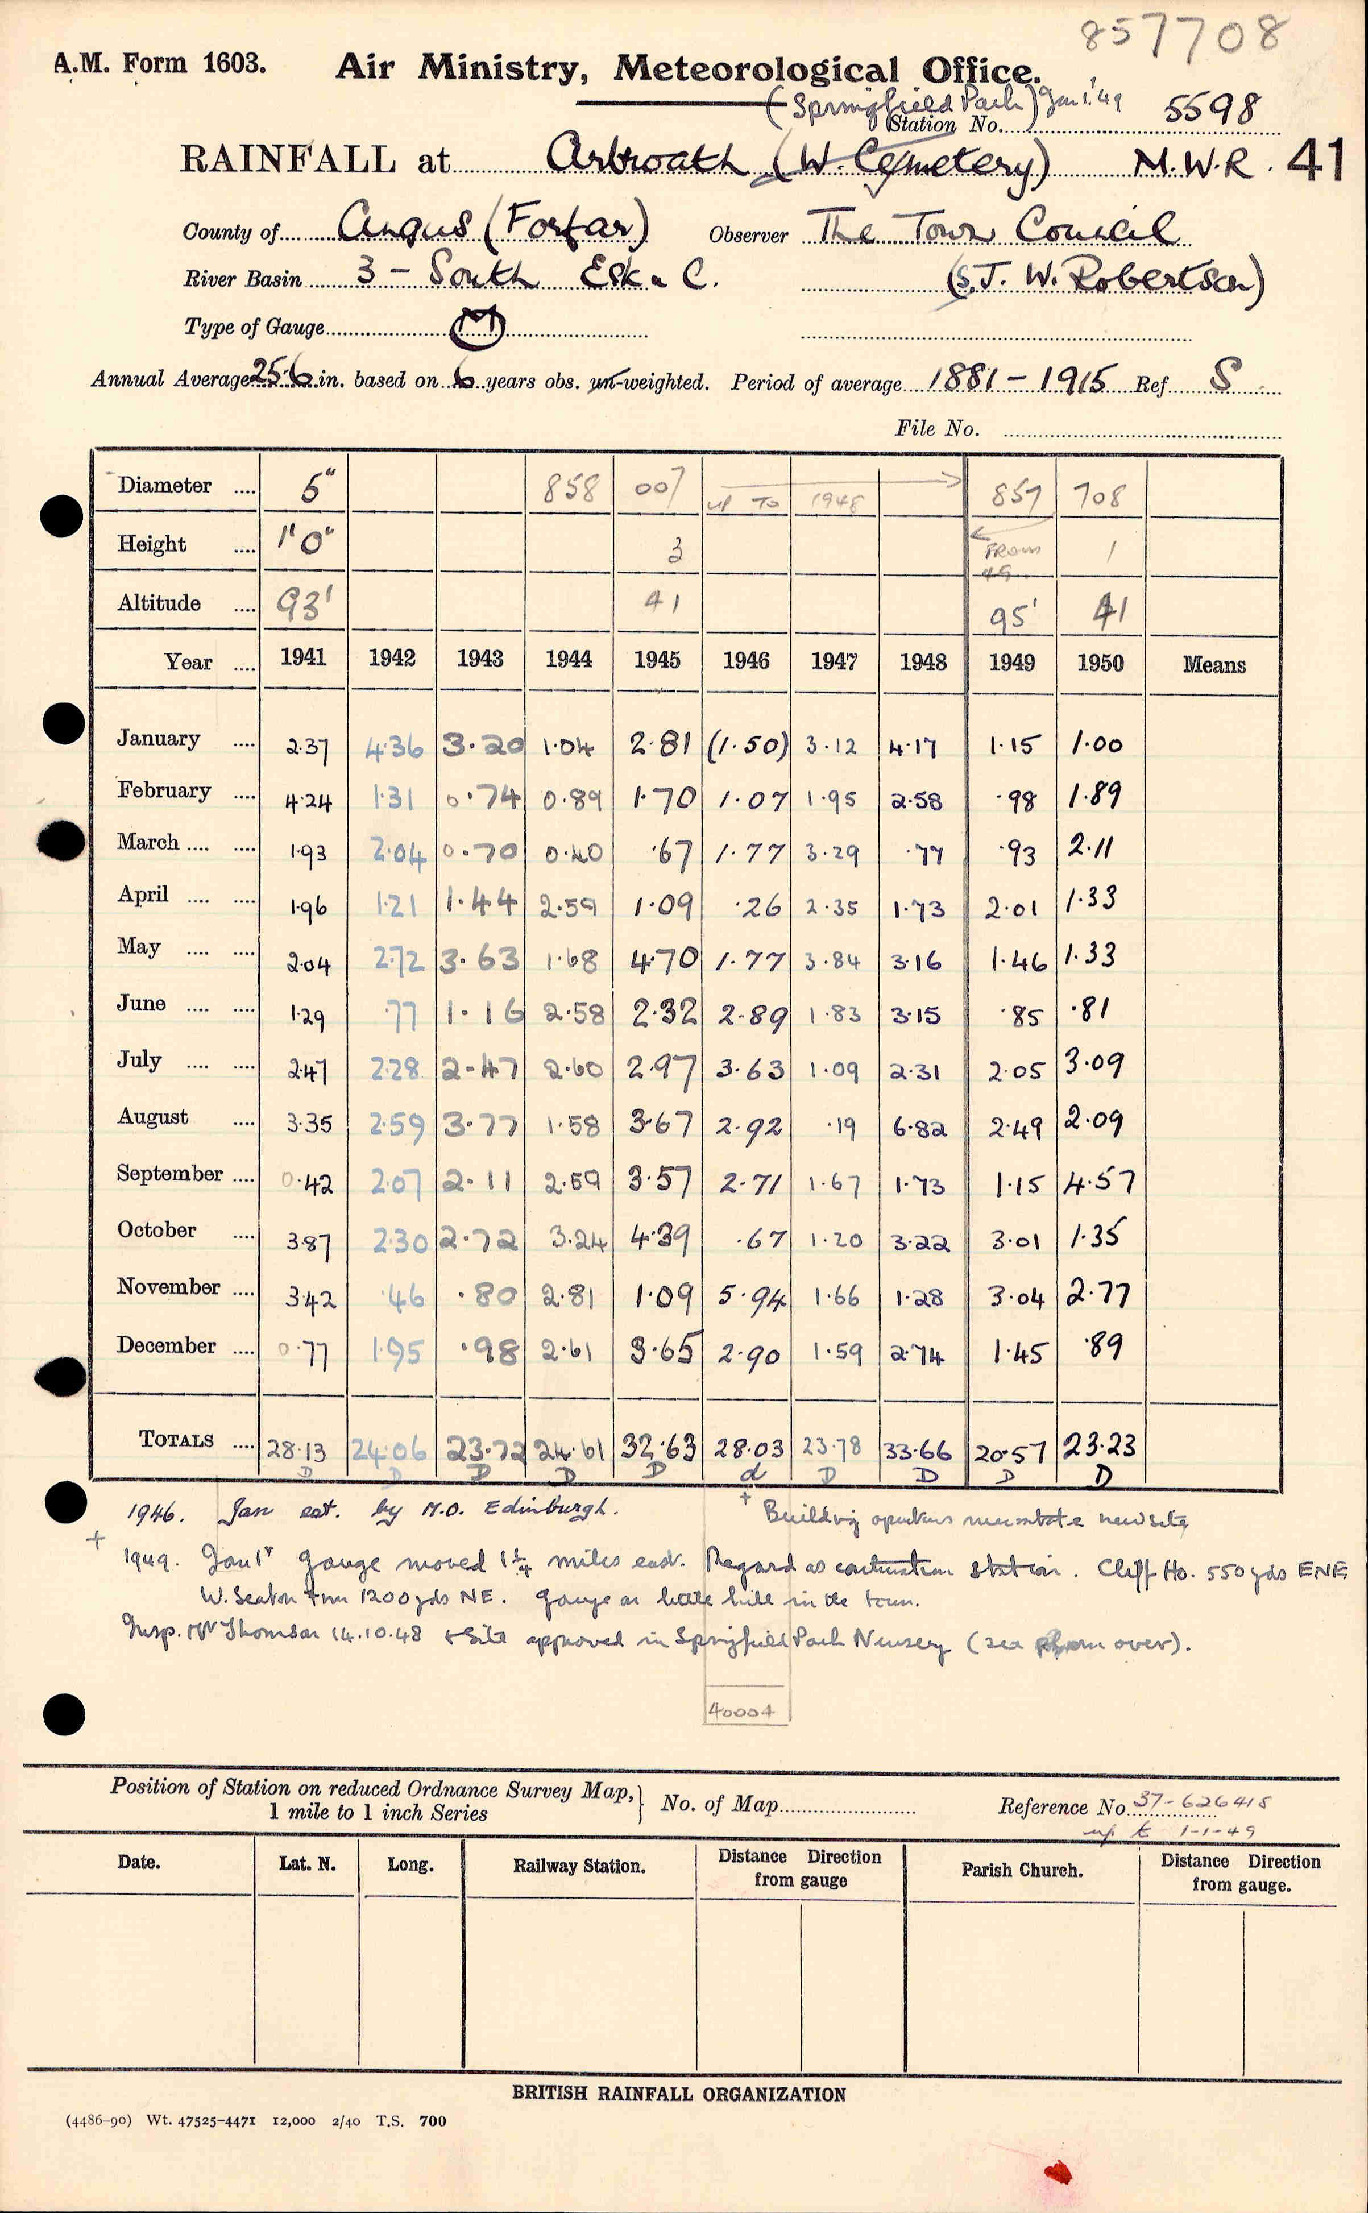 857708
A.M. Form 1603. Air Ministry, Meteorological Office.
(Springfield Park) Jan 1 '49
Station No. 5598
RAINFALL at Arbroath (W. Cemetery) M.W.R. 41
County of Angus (Forfar) Observer The Town Council
River Basin 3 - South Esk &c. (S. J. W. Robertson)
Type of Gauge M
Annual Average 25.6 in. based on 6 years obs. un-weighted. Period of average 1881-1915 Ref S
File No.
Diameter .... 5" 858 007 up to 1948 857 708
Height .... 1'0" 3 From 49 1
Altitude .... 93' 41 95' 41
Year .... 1941 1942 1943 1944 1945 1946 1947 1948 1949 1950 Means
January .... 2.37 4.36 3.20 1.04 2.81 (1.50) 3.12 4.17 1.15 1.00
February .... 4.24 1.31 0.74 0.89 1.70 1.07 1.95 2.58 .98 1.89
March .... .... 1.93 2.04 0.70 0.40 .67 1.77 3.29 .77 .93 2.11
April .... .... 1.96 1.21 1.44 2.59 1.09 .26 2.35 1.73 2.01 1.33
May .... .... 2.04 2.72 3.63 1.68 4.70 1.77 3.84 3.16 1.46 1.33
June .... .... 1.29 .77 1.16 2.58 2.32 2.89 1.83 3.15 .85 .81
July .... .... 2.47 2.28 2.47 2.60 2.97 3.63 1.09 2.31 2.05 3.09
August .... 3.35 2.59 3.77 1.58 3.67 2.92 .19 6.82 2.49 2.09
September .... 0.42 2.07 2.11 2.59 3.57 2.71 1.67 1.73 1.15 4.57
October .... 3.87 2.30 2.72 3.24 4.39 .67 1.20 3.22 3.01 1.35
November .... 3.42 .46 .80 2.81 1.09 5.94 1.66 1.28 3.04 2.77
December .... 0.77 1.95 .98 2.61 3.65 2.90 1.59 2.74 1.45 .89
TOTALS .... 28.13 24.06 23.72 24.61 32.63 28.03 23.78 33.66 20.57 23.23
D D D D D d D D D D
1946. Jan est. by M.O. Edinburgh. + Building new site
+ 1949. Jan 1st gauge moved 1 1/4 miles east. Regard as continuation station. Cliff Ho. 550 yds ENE
W. Seaton Fm 1200 yds NE. Gauge on little hill in the town.
Insp. Mr Thomson 14.10.48 & Site approved in Springfield Park Nursery (see over).
40004
Position of Station on reduced Ordnance Survey Map, 1 mile to 1 inch Series } No. of Map Reference No. 37-626415
up to 1-1-49
Date. Lat. N. Long. Railway Station. Distance Direction from gauge Parish Church. Distance Direction from gauge.
BRITISH RAINFALL ORGANIZATION
(4486-90) Wt. 47525-4471 12,000 2/40 T.S. 700